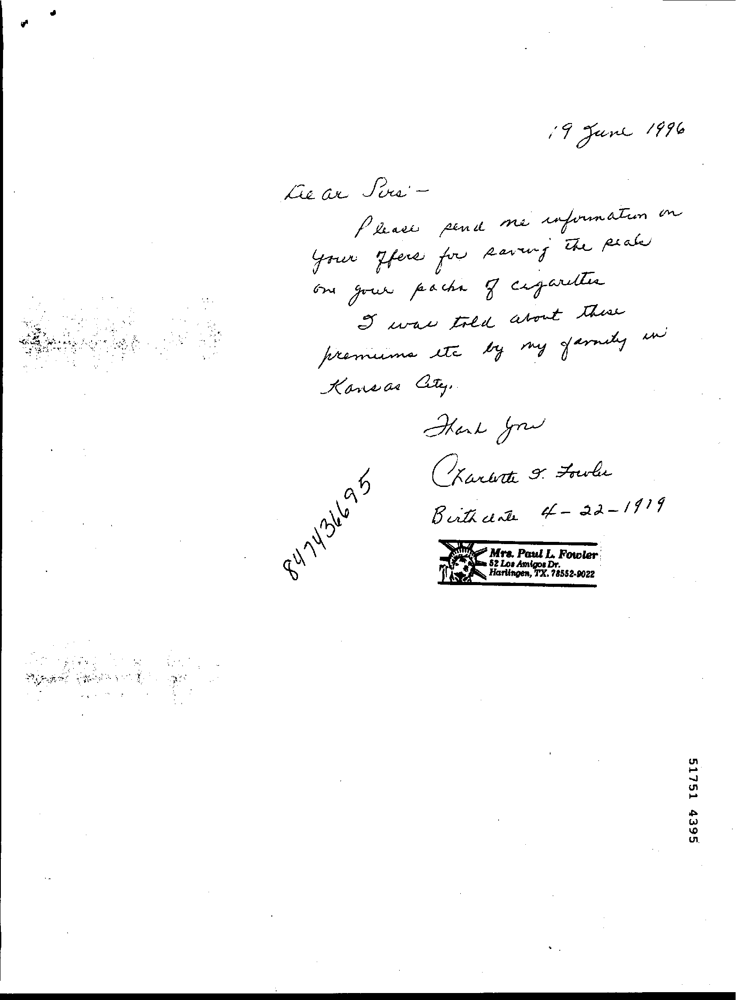 19 June 1996
Dear Sirs -
Please send me information on
your offers for saving the seals
on your packs of cigarettes
I was told about these
premiums etc by my family in
Kansas City.
Thank you
Charlotte I. Fowler
Birthdate 4-22-1919
847436695
Mrs. Paul L. Fowler
52 Los Amigos Dr.
Harlingen, TX. 78552-9022
51751 4395